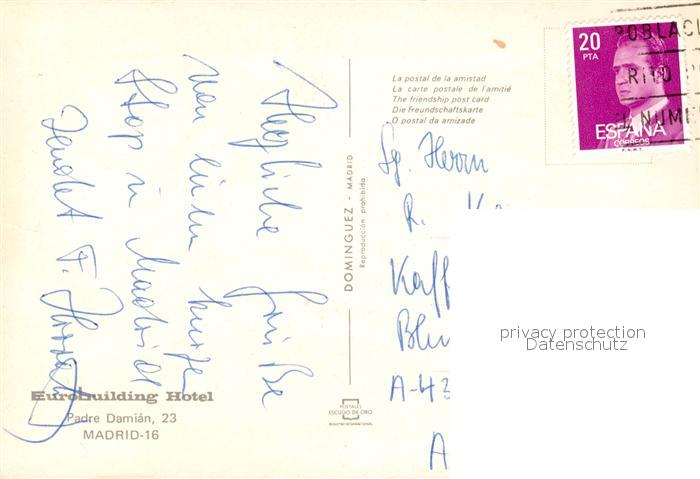 Herzliche Grüße
von einem kurzen
Stop in Madrid
sendet F.
Eurobuilding Hotel
Padre Damián, 23
MADRID-16
DOMINGUEZ - MADRID
Reproducción prohibida
POSTALES
ESCUDO DE ORO
La postal de la amistad
La carte postale de l'amitié
The friendship post card
Die Freundschaftskarte
O postal da amizade
20
PTA
ESPAÑA
CORREOS
F.N.M.T.
POBLACI
RITO
NUMI
Sg. Herrn
R. K
Kaff
Blu
A-43
A
privacy protection
Datenschutz